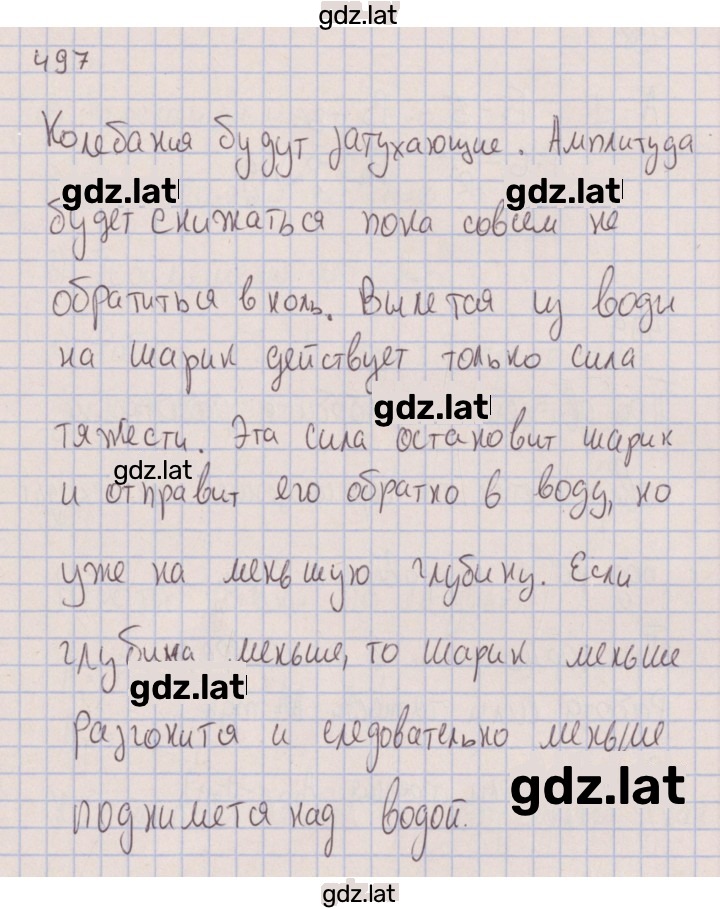 gdz.lat
497
Колебания будут затухающие. Амплитуда
gdz.lat gdz.lat
будет снижаться пока совсем не
обратиться в ноль. Вылетая из води
на шарик действует только сила
gdz.lat
тяжести. Эта сила остановит шарик
gdz.lat
и отправит его обратно в воду, но
уже на меньшую глубину. Если
глубина меньше, то шарик меньше
gdz.lat
разгонится и следовательно меньше
gdz.lat
поднимется над водой.
gdz.lat